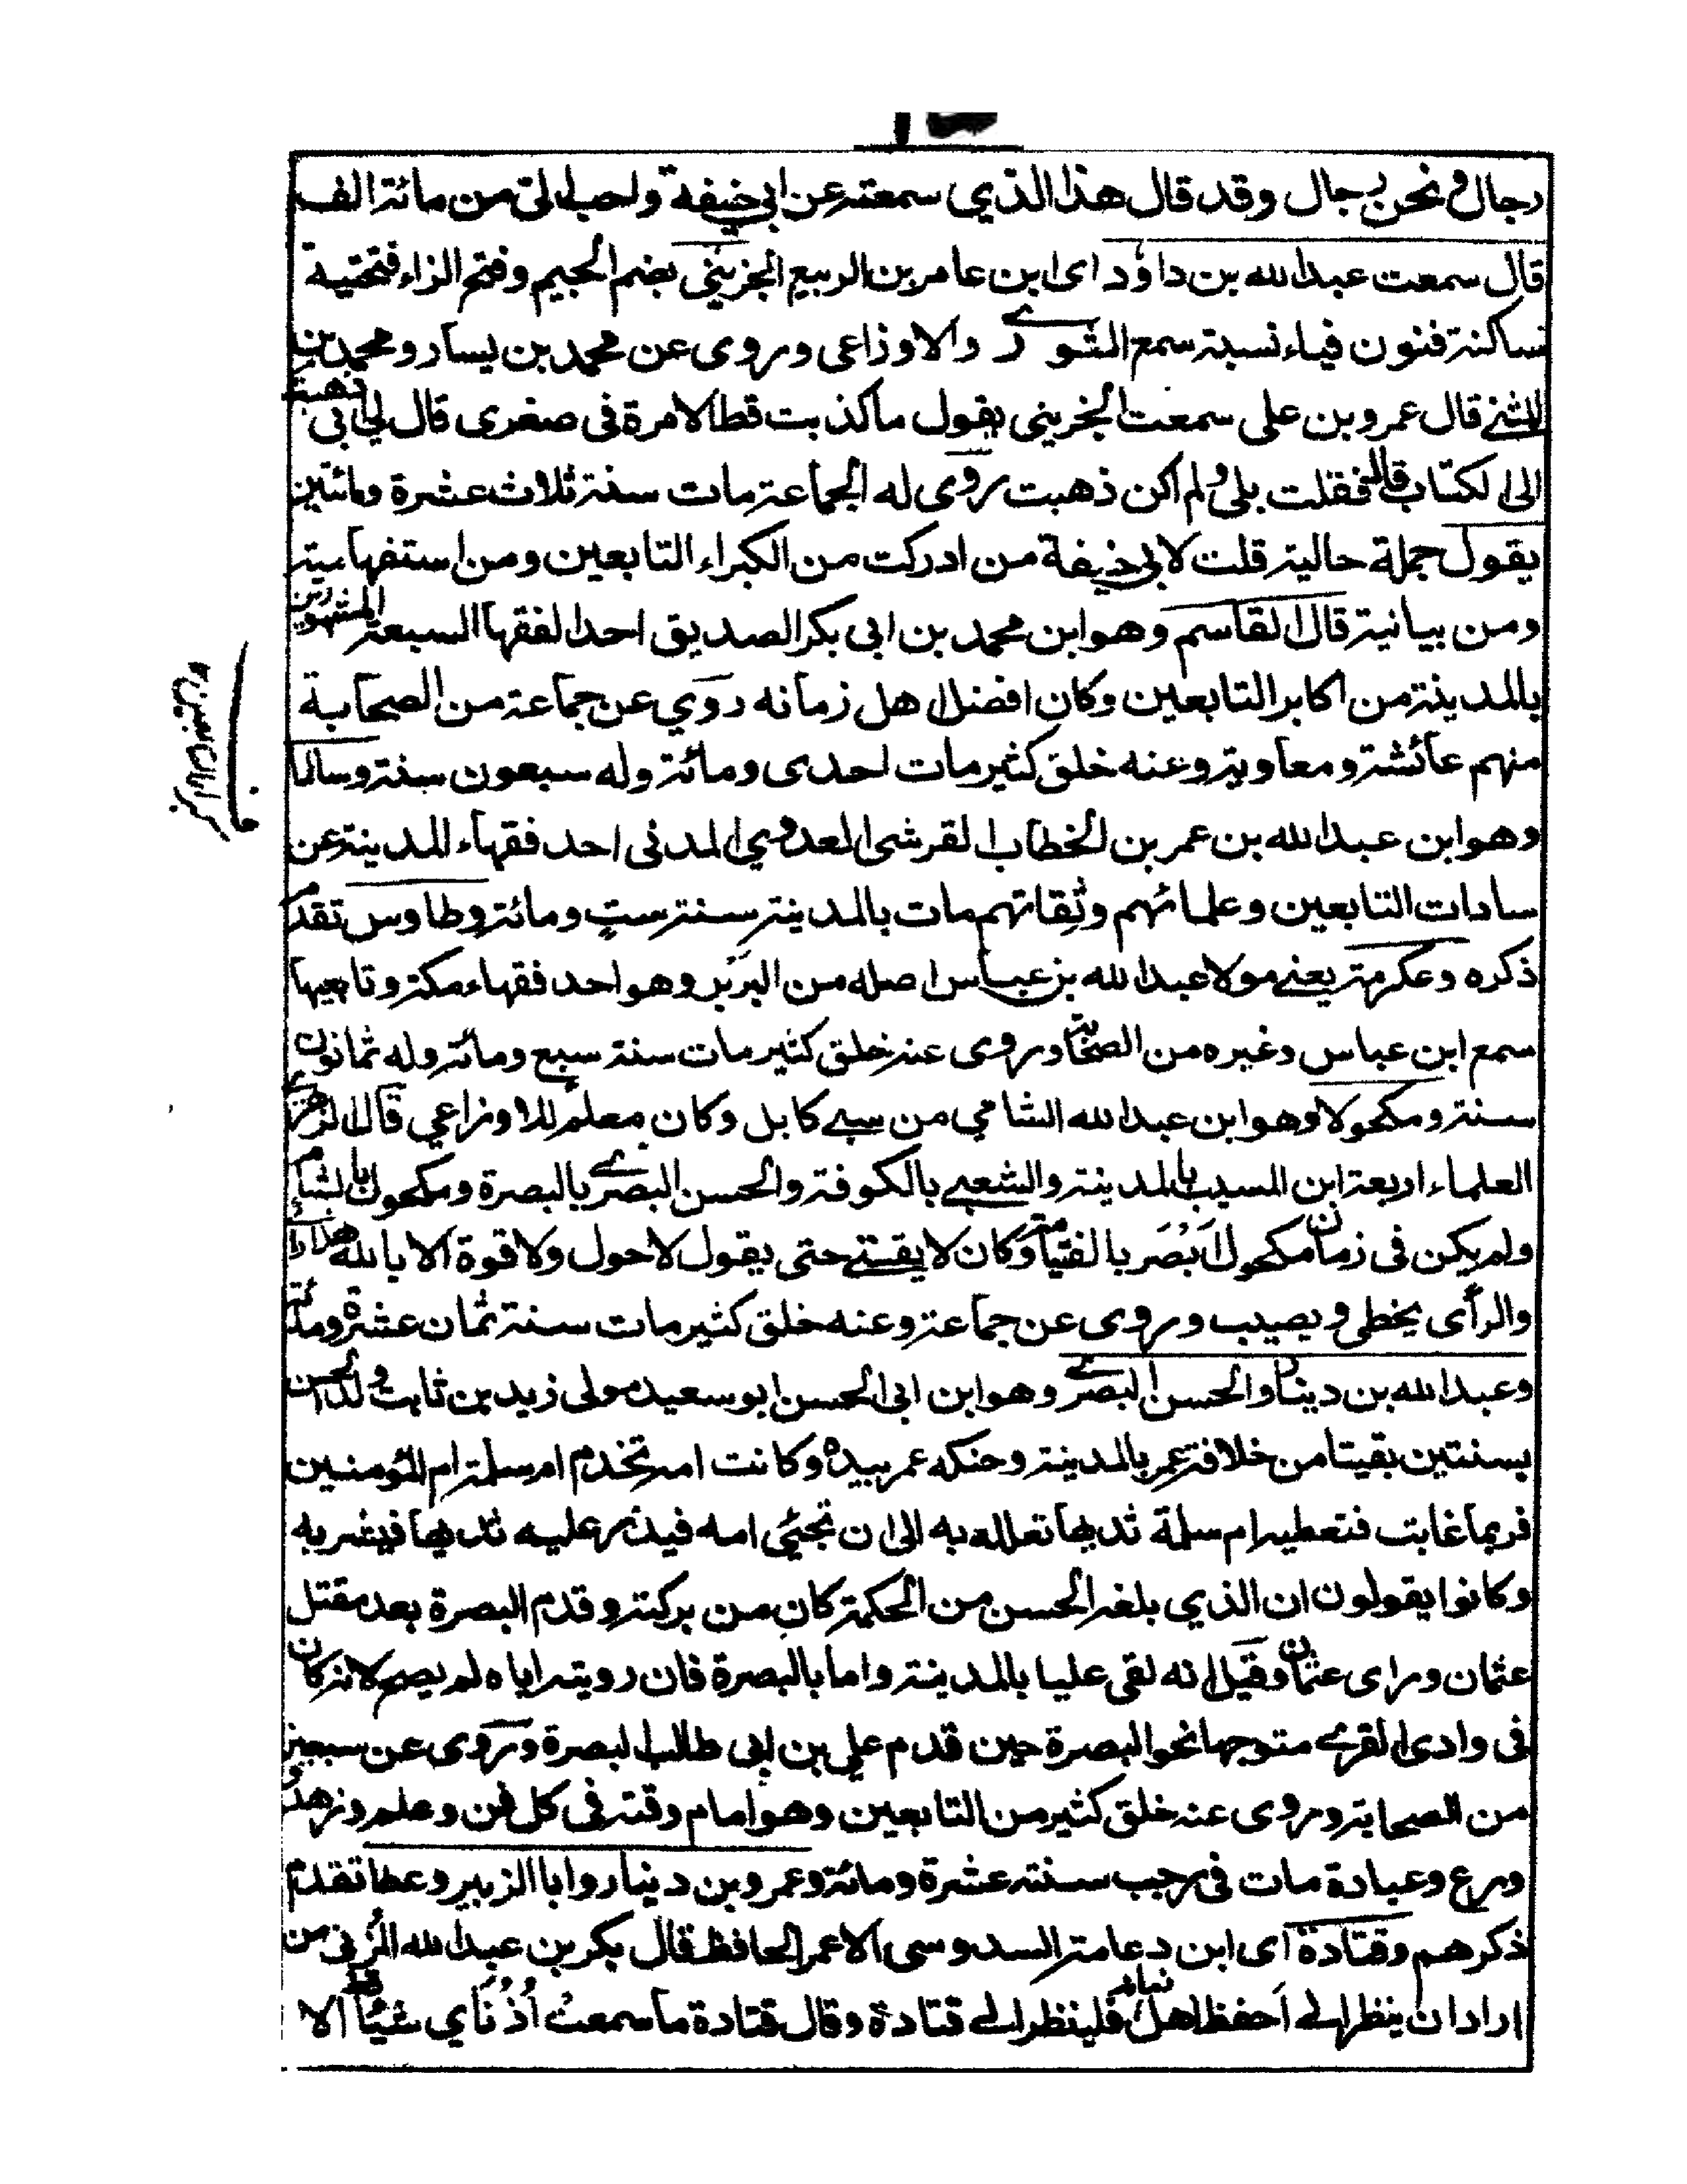 رجال ونحن رجال وقد قال هذا الذي سمعته عن ابي حنيفة واحب الى من مائة الف
قال سمعت عبد الله بن داؤد اى ابن عامر بن الربيع الجزينى بضم الجيم وفتح الزاء فتحتية
ساكنة فنون فياء نسبة سمع الثوري والاوزاعى وروى عن محمد بن يسار ومحمد بن
المثنى قال عمرو بن على سمعت الخرينى يقول ما كذبت قط الامرة فى صغرى قال لى ابى ذهبت
الى الكتاب قال فقلت بلى ولم اكن ذهبت روى له الجماعة مات سنة ثلاث عشرة ومائتين
يقول جملة حالية قلت لابى حنيفة من ادركت من الكبراء التابعين ومن استفهامية
ومن بيانية قال القاسم وهو ابن محمد بن ابى بكر الصديق احد الفقها السبعة المشهورين
بالمدينة من اكابر التابعين وكان افضل اهل زمانه روي عن جماعة من الصحابة
منهم عائشة ومعاوية وعنه خلق كثير مات احدى ومائة وله سبعون سنة وسالما
وهو ابن عبد الله بن عمر بن الخطاب القرشى العدوي المدنى احد فقهاء المدينة عن
سادات التابعين وعلمائهم وثقاتهم مات بالمدينة سنة ست ومائة وطاوس تقدم
ذكره وعكرمة يعنى مولا عبد الله بن عباس اصله من البربر وهو احد فقهاء مكة وتابعيها
سمع ابن عباس وغيره من الصحابة وروى عنه خلق كثير مات سنة سبع ومائة وله ثمانون
سنة ومكحولا وهو ابن عبد الله الشامي من سبى كابل وكان معلم للاوزاعي قال الزهرى
العلماء اربعة ابن المسيب بالمدينة والشعبى بالكوفة والحسن البصرى بالبصرة ومكحول بالشام
ولم يكن فى زمان مكحول ابصر بالفتيا منه وكان لا يفتى حتى يقول لا حول ولا قوة الا بالله هذا رأى
والرأى يخطى ويصيب وروى عن جماعة وعنه خلق كثير مات سنة ثمان عشرة ومائة
وعبد الله بن دينار والحسن البصرى وهو ابن ابى الحسن ابو سعيد مولى زيد بن ثابت ولد الحسن
بسنتين بقيتا من خلافة عمر بالمدينة وحنكه عمر بيده وكانت امه تخدم ام سلمة ام المؤمنين
فربما غابت فتعطيه ام سلمة ثديها تعلله به الى ان تجئى امه فيدر عليه ثديها فيشربه
وكانوا يقولون ان الذي بلغه الحسن من الحكمة كان من بركته وقدم البصرة بعد مقتل
عثمان وراى عثمان وقيل انه لقى عليا بالمدينة واما بالبصرة فان رويته اياه لم يصح لانه كان
فى وادى القرى متوجها نحو البصرة حين قدم علي بن ابى طالب البصرة وروى عن سبعين
من الصحابة وروى عنه خلق كثير من التابعين وهو امام وقته فى كل فن وعلم وزهد و
ورع وعبادة مات فى رجب سنة عشرة ومائة وعمرو بن دينار وابا الزبير وعطا تقدم
ذكرهم وقتادة اى ابن دعامة السدوسى الاعمى الحافظ قال بكر بن عبد الله المزنى من
اراد ان ينظر الى احفظ اهل زمانه فلينظر الى قتادة وقال قتادة ما سمعت اُذُناي شيئا قط الا